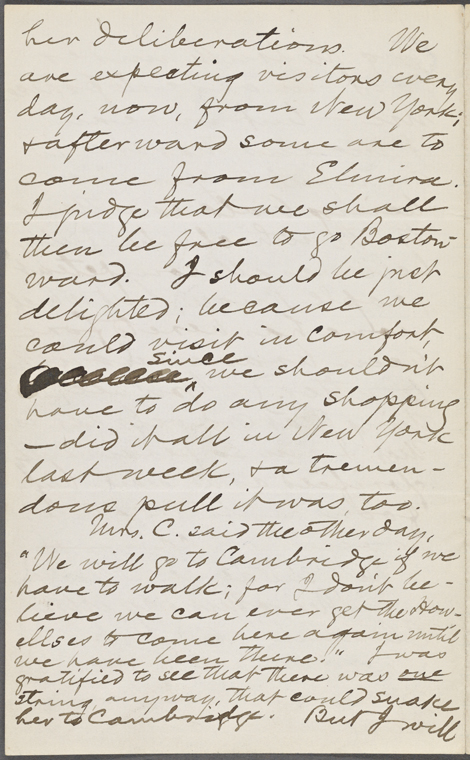 her deliberations. We
are expecting visitors every
day, now, from New York;
& afterward some are to
come from Elmira.
I judge that we shall
then be free to go Boston-
ward. I should be just
delighted; because we
could visit in comfort,
since
we shouldn't
have to do any shopping
—did it all in New York
last week, & a tremen-
dous pull it was, too.
Mrs. C. said the other day,
"We will go to Cambridge if we
have to walk; for I don't be-
lieve we can ever get the How-
ellses to come here again until
we have been there." I was
gratified to see that there was one
string, anyway, that could snake
her to Cambridge. But I will